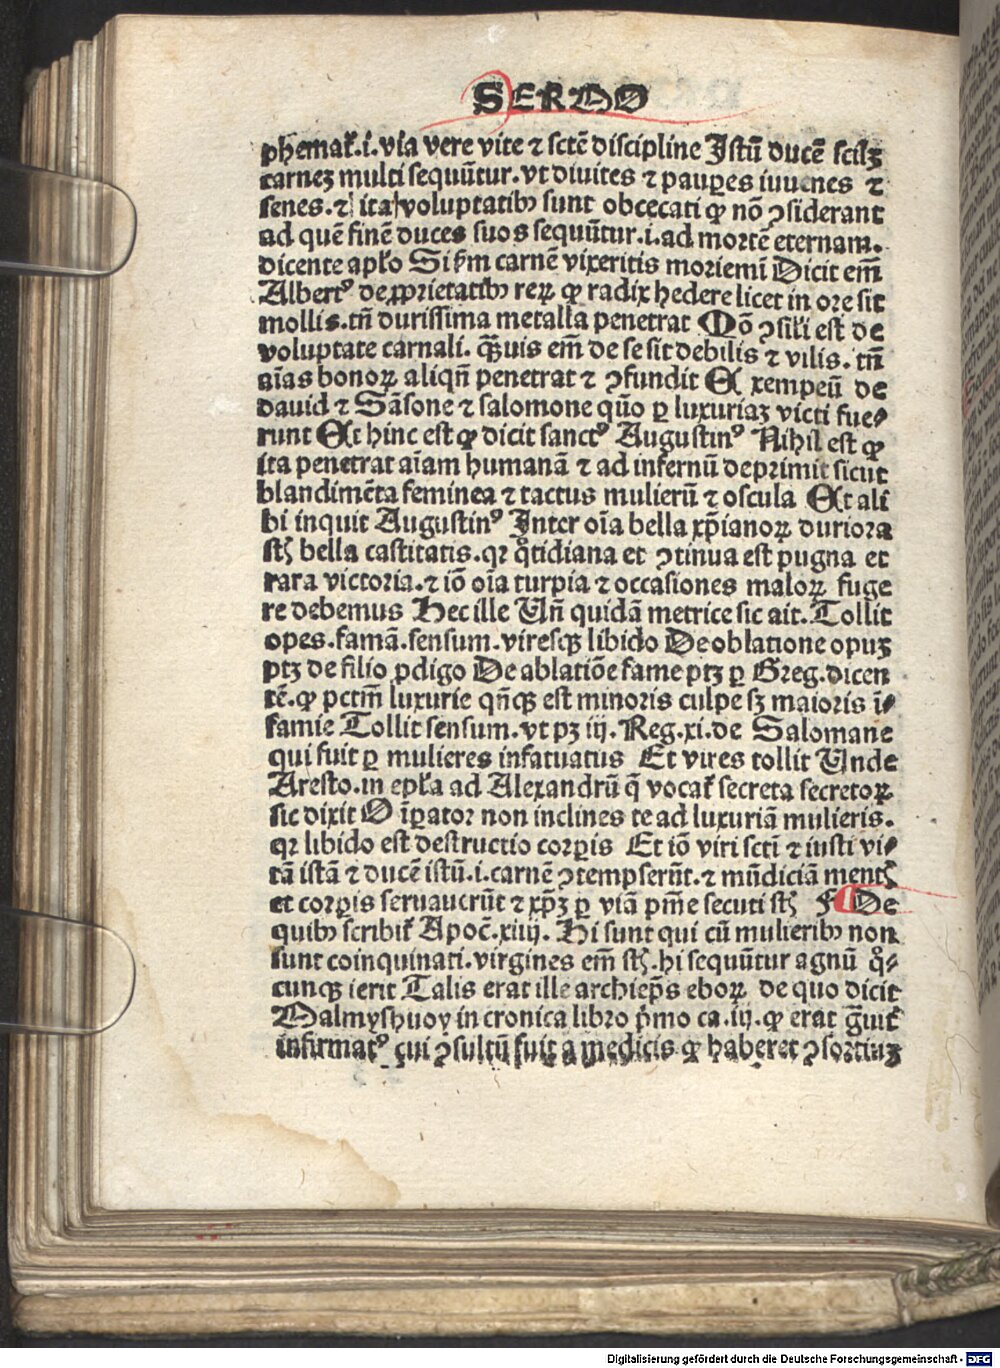 SERMO
phemat̄.i. via vere vite ⁊ sctē discipline Istū ducē scilꝫ
carneꝫ multi sequūtur. vt diuites ⁊ pauꝑes iuuenes ⁊
senes.⁊ ita voluptatibꝰ sunt obcecati ꝙ nō ꝯsiderant
ad quē finē duces suos sequūtur.i. ad mortē eternam.
dicente apło Si ẜm carnē vixeritis moriemī Dicit em̄
Albertꝰ de ꝓprietatibꝰ reꝝ ꝙ radix hedere licet in ore sit
mollis.tn̄ durissima metalla penetrat Mō ꝯsil̄i est de
voluptate carnali. q̄uis em̄ de se sit debilis ⁊ vilis. tn̄
aīas bonoꝝ aliqn̄ penetrat ⁊ ꝯfundit Et xempeū de
dauid ⁊ Sāsone ⁊ salomone quō ꝑ luxuriaꝫ victi fue⸗
runt Et hinc est ꝙ dicit sanctꝰ Augustinꝰ Nihil est ꝙ
ita penetrat aīam humanā ⁊ ad infernū deprimit sicut
blandimēta feminea ⁊ tactus mulierū ⁊ oscula Et ali
bi inquit Augustinꝰ Inter oīa bella xp̄ianoꝝ duriora
st̄ bella castitatis. qꝛ q̊tidiana et ꝯtinua est pugna et
rara victoria.⁊ iō oīa turpia ⁊ occasiones maloꝝ fuge
re debemus Hec ille Vn̄ quidā metrice sic ait. Tollit
opes. famā. sensum. viresqꝫ libido De oblatione opuꝫ
ptꝫ de filio ꝓdigo De ablatiōe fame ptꝫ ꝑ Greg. dicen
tē. ꝙ pctm̄ luxurie qn̄cqꝫ est minoris culpe sꝫ maioris ī⸗
famie Tollit sensum. vt pꝫ iij. Reg. xi. de Salomane
qui fuit ꝑ mulieres infatuatus Et vires tollit Vnde
Aresto. in epła ad Alexandrū q̄ vocat̄ secreta secretoꝝ
sic dixit O īꝑator non inclines te ad luxuriā mulieris.
qꝛ libido est destructio corꝑis Et iō viri scti ⁊ iusti vi⸗
tā istā ⁊ ducē istū.i. carnē ꝯtempserūt.⁊ mūdiciā ment̄
et corꝑis seruauerūt ⁊ xp̄ꝫ ꝑ viā pm̄e secuti st̄ F De
quibꝰ scribit̄ Apoc̄. xiiij. Hi sunt qui cū mulieribꝰ non
sunt coinquinati. virgines em̄ st̄. hi sequūtur agnū q̊⸗
cunqꝫ ierit Talis erat ille archiep̄s eboꝝ de quo dicit
Malmyshuoy in cronica libro p̄mo ca. iij. ꝙ erat g̈uit̄
infirmatꝰ cui ꝯsultū fuit a medicis ꝙ haberet ꝯsortiuꝫ
Digitalisierung gefördert durch die Deutsche Forschungsgemeinschaft - DFG